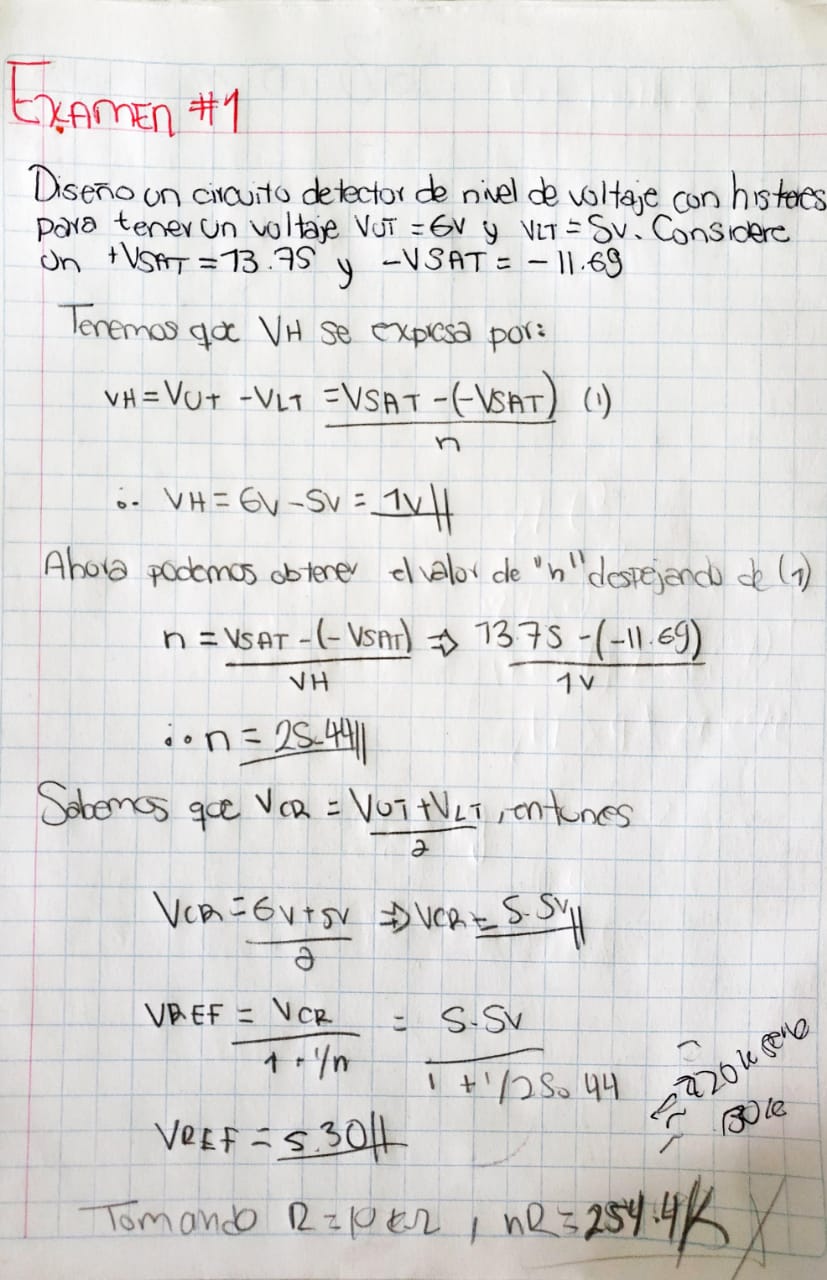 EXAMEN #1
Diseño un circuito detector de nivel de voltaje con histeres
para tener un voltaje VUT = 6V y VLT = 5V. Considere
un +VSAT = 13.75 y -VSAT = -11.69
Tenemos que VH se expresa por:
VH = VUT - VLT = VSAT - (-VSAT) (1)
n
∴ VH = 6V - 5V = 1V//
Ahora podemos obtener el valor de "n" despejando de (1)
n = VSAT - (-VSAT) ⇒ 13.75 - (-11.69)
VH 1V
∴ n = 25.44//
Sabemos que VCR = VUT + VLT, entonces
2
VCR = 6V + 5V ⇒ VCR = 5.5V//
2
VREF = VCR = 5.5V
1 + 1/n 1 + 1/25.44
220k serie
30k
VREF = 5.30//
Tomando R = 10kΩ, nR = 254.4K